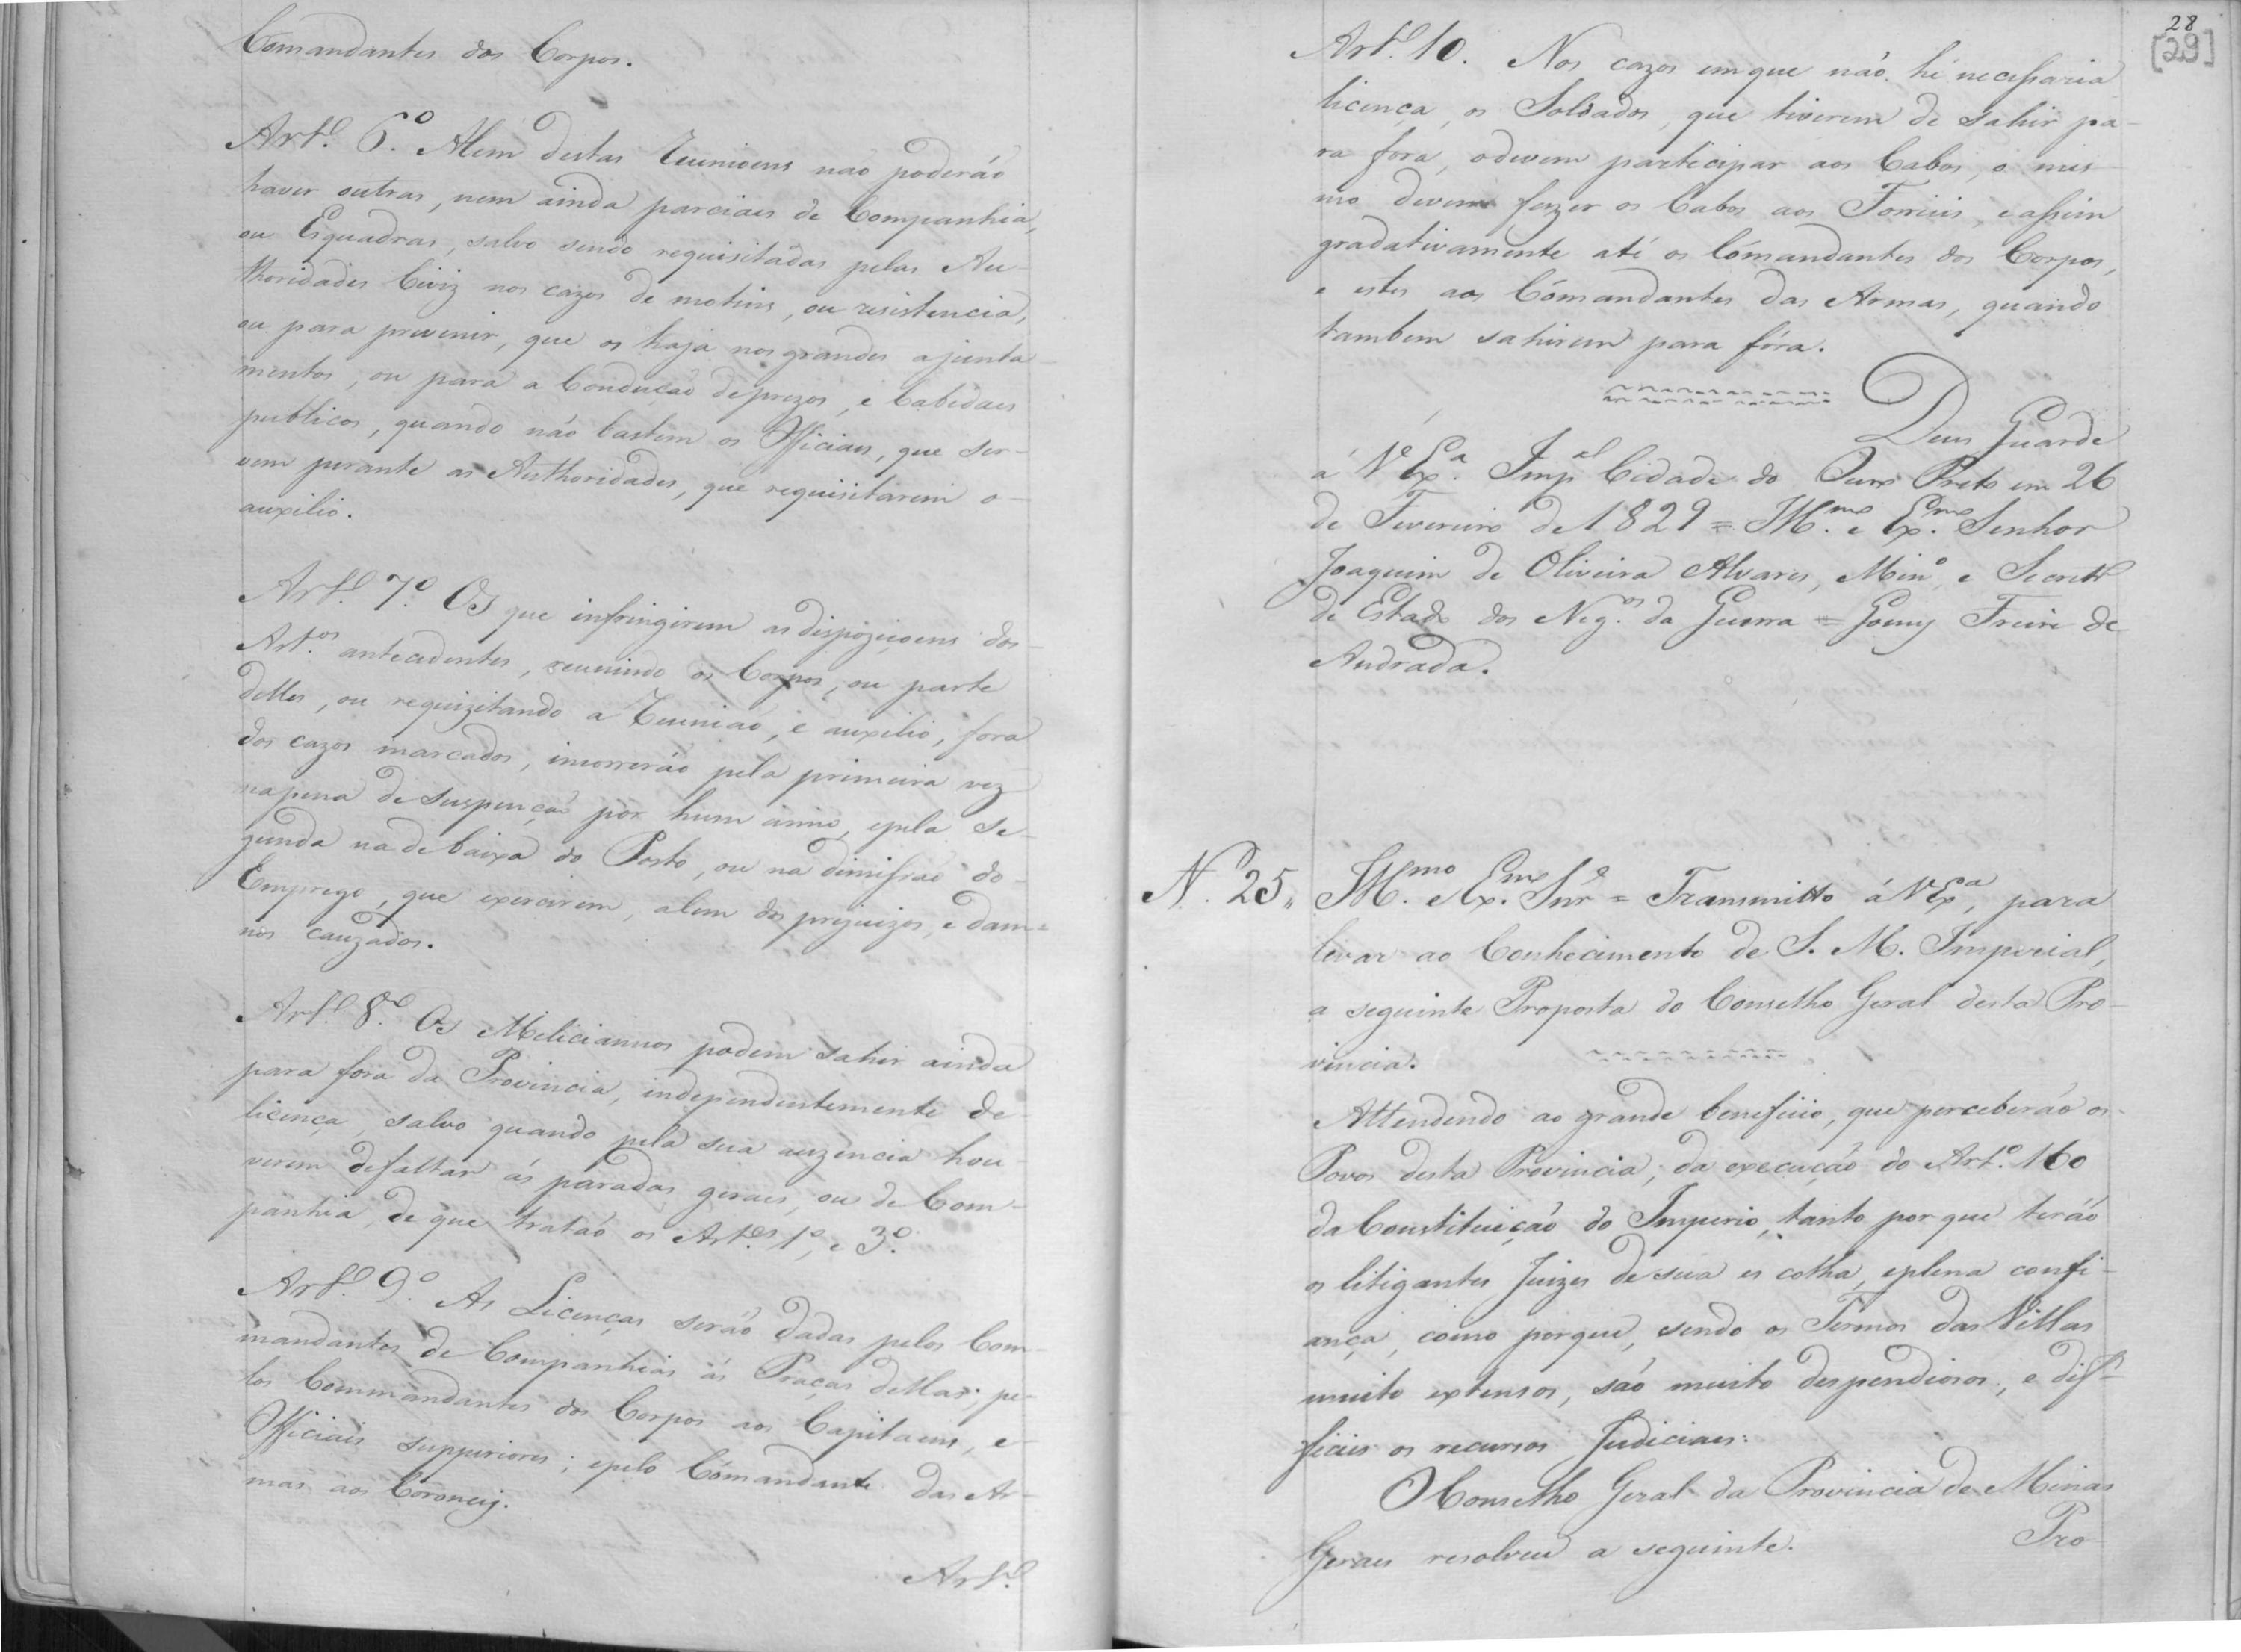 Comandantes dos Corpos.
Artº. 6º. Alem destas Reunioens não poderáõ
haver outras, nem ainda parciaes de Companhia,
ou Esquadras, salvo sendo requisitadas pelas Au-
thoridades Civiz nos cazos de motins, ou resistencia,
ou para prevenir, que os haja nos grandes ajunta-
mentos, ou para a Condução de prezos, e Cabedaes
publicos, quando não bastem os Officiaes, que ser-
vem perante as Authoridades, que requisitarem o-
auxilio.
Artº. 7º. Os que infringirem as dispoziçoens dos-
Art.os antecedentes, reunindo os Corpos, ou parte
delles, ou requizitando a Reunião, e auxilio, fora
dos cazos marcados, incorrerão pela primeira vez
na pena de Suspenção por hum anno, epela Se-
gunda na de baixa do Posto, ou na dimissão do-
Emprego, que exercerem, alem dos prejuizos, e dam=
nos cauzados.
Artº. 8º. Os Milicianos podem sahir ainda
para fora da Provincia, independentemente de
licença, salvo quando pela sua auzencia hou-
verem defaltar ás paradas geraes, ou de Com-
panhia, de que tratão os Art.os 1º, e 3º.
Artº. 9º. As Licenças serão dadas pelos Com-
mandantes de Companhias ás Praças dellas; pe-
los Commandantes dos Corpos aos Capitaens, e-
Officiais supperiores; epelo Cómandante das Ar-
mas aos Coroneis.
Artº.
28
[29]
Artº. 10. Nos cazos em que não hé necessaria
licença, os Soldados, que tiverem de sahir pa-
ra fora, odevem participar aos Cabos, o mes-
mo devem fazer os Cabos aos Forrieis, eassim
gradativamente até os Cómandantes dos Corpos,
e estes aos Cómandantes das Armas, quando
tambem sahirem para fóra.
Deos Guarde
á V. Ex.a Imp.al Cidade do Ouro Preto em 26
de Fevereiro de 1829 = Ill.mo e Ex.mo Senhor
Joaquim de Oliveira Alvares, Min.o e Secret.o
de Estado dos Neg.os da Guerra = Gomes Freire de
Andrada.
N. 25,, Ill.mo e Ex.mo Snr.e = Transmitto á V. Ex.a, para
levar ao Conhecimento de S. M. Imperial,
a seguinte Proposta do Conselho Geral desta Pro-
vincia.
Attendendo ao grande beneficio, que perceberáõ os-
Povos desta Provincia, da execução do Artº. 160
da Constituição do Imperio, tanto por que teráõ
os litigantes Juizes de sua es colha, eplena confi-
ança, como porque, sendo os Termos das Villas
muito extensos, são muito despendiosos, e dif-
ficeis os recursos Judiciaes:
O Conselho Geral da Provincia de Minas
Geraes resolveu a seguinte.
Pro